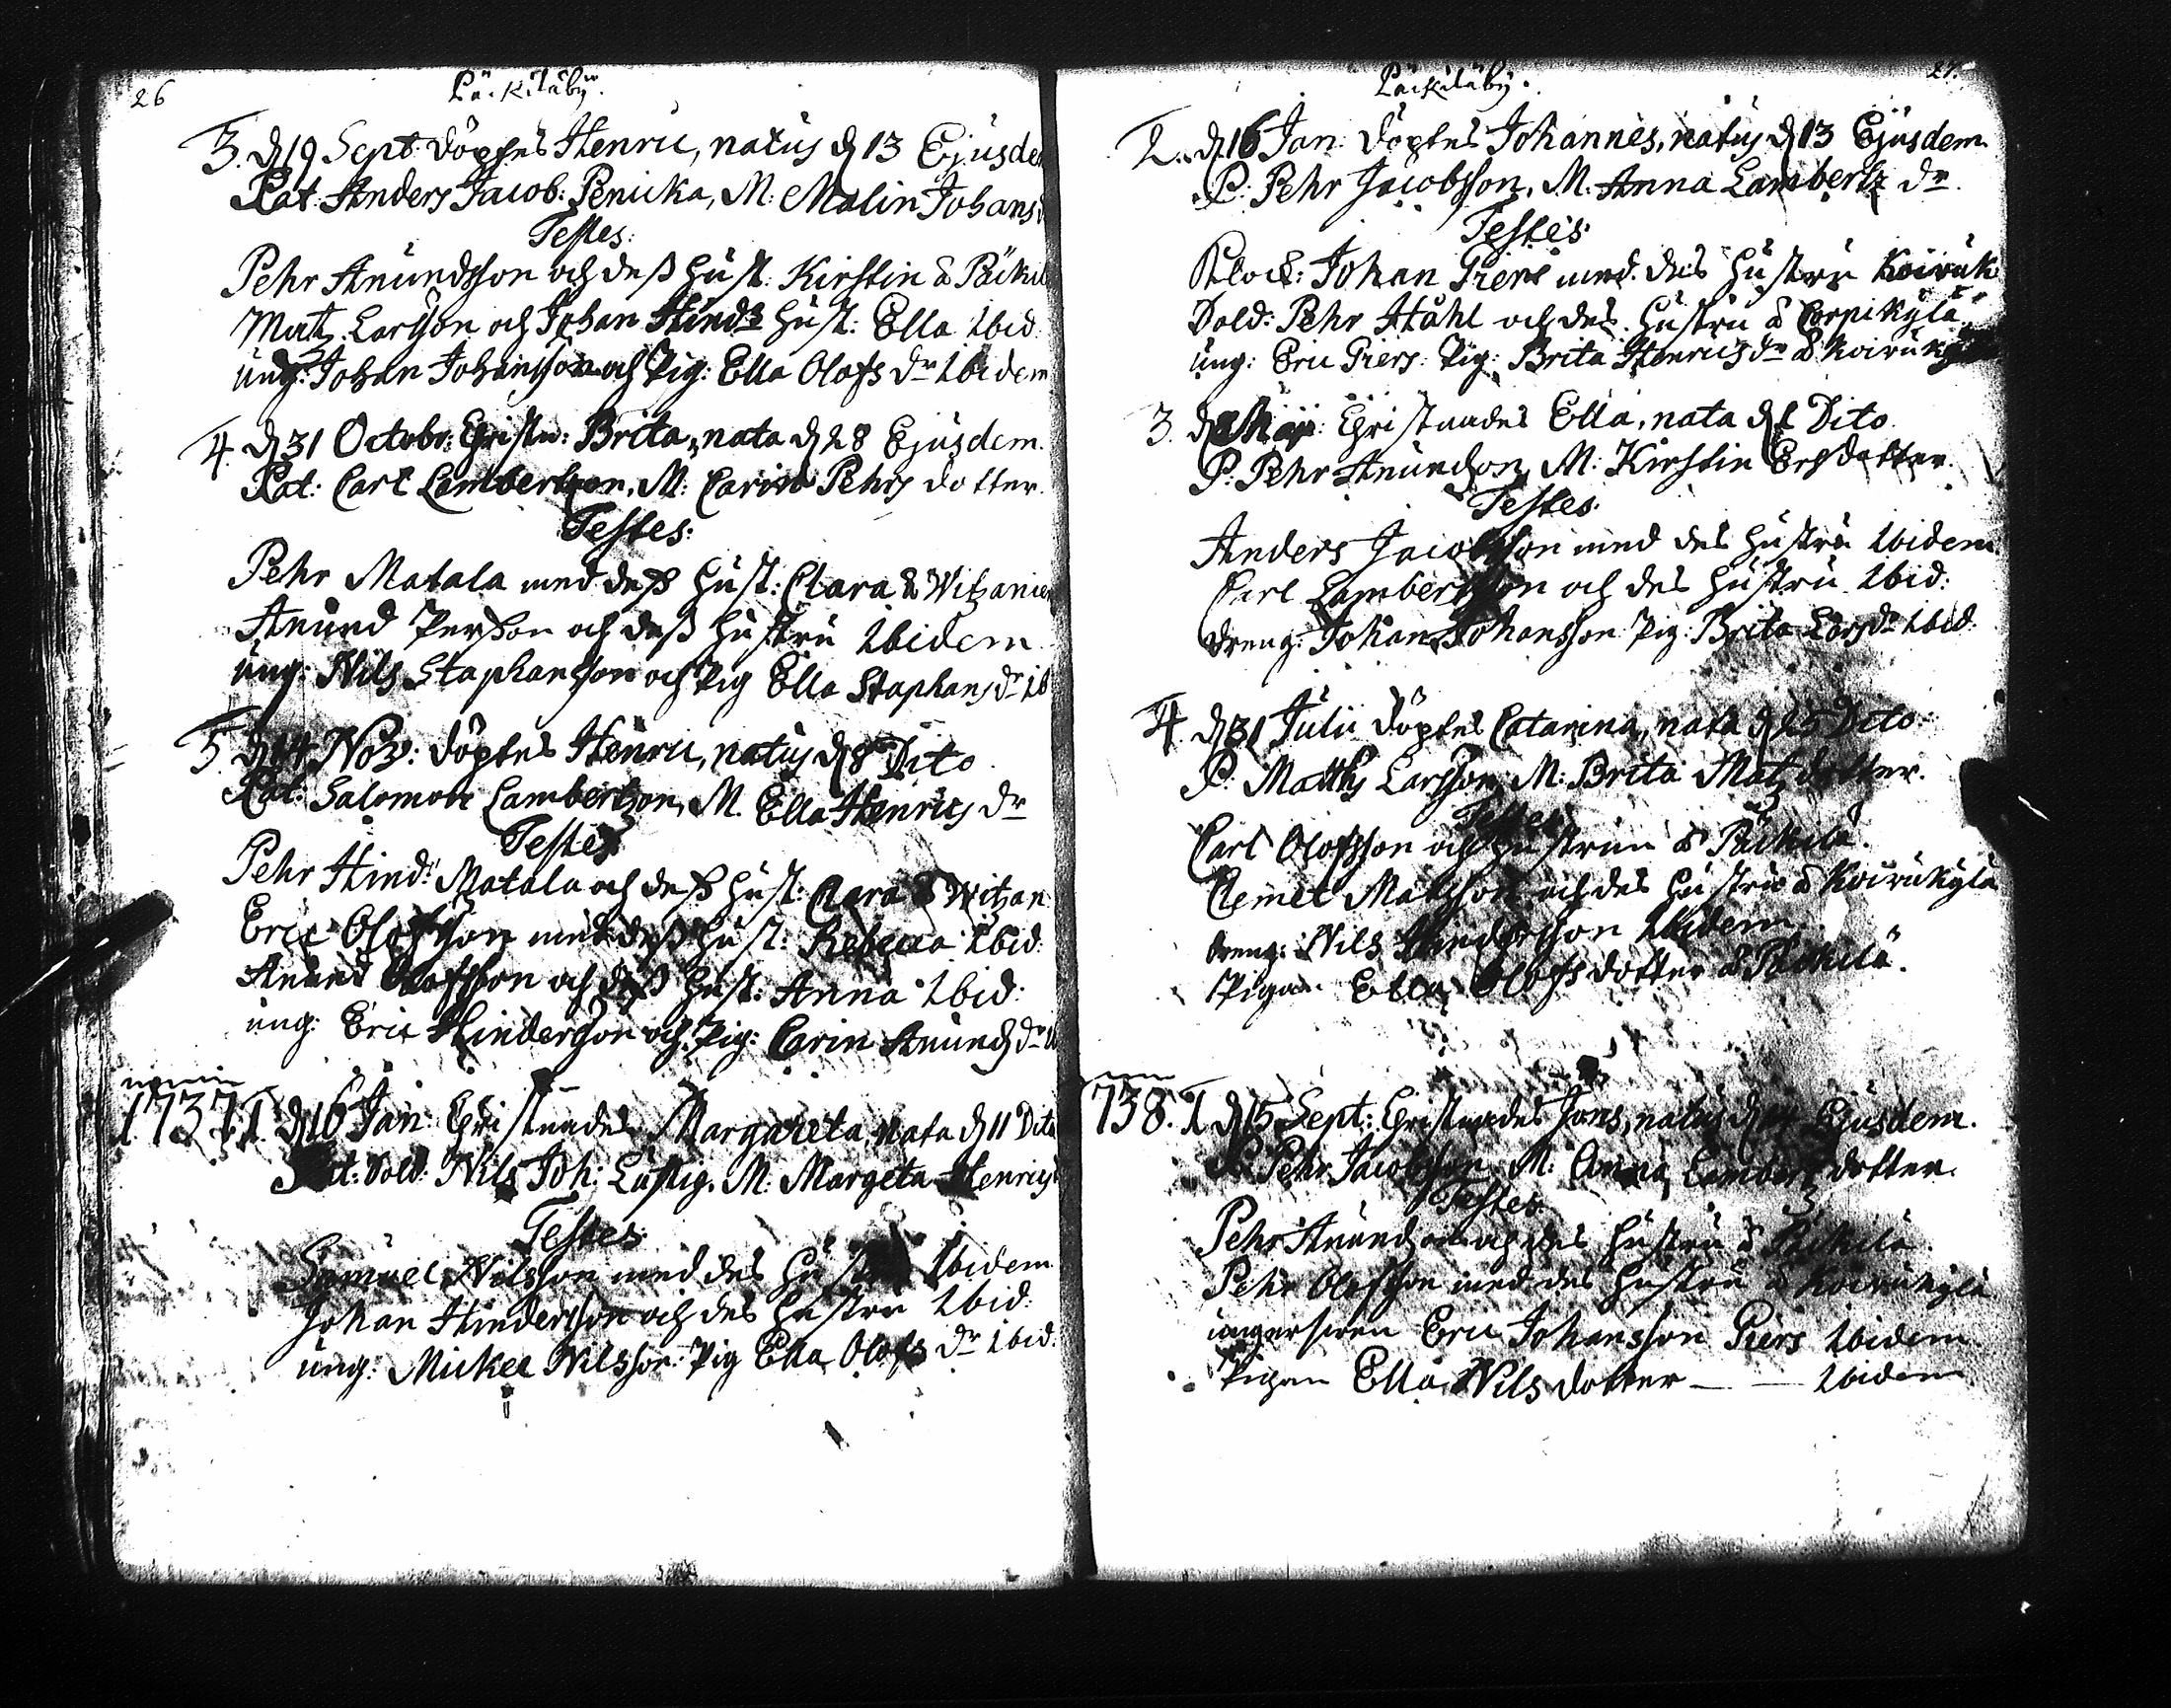 26
Päckilaby.
3. d 19 Sept döptes Henric, natus d 13 Ejusde
Pat. Anders Jacob: Penicka, M: Malin Johans
Testes:
Pehr Anundsson och deß Hust: Kirstin å Päckil
Matz Larsson och Johan Hindz Hust: Ella Ibid.
ung: Johan Johansson och Pig: Ella Olofs Dr Ibidem
4. d 31 Octobr: Christn: Brita, nata d 28 Ejusdem.
Pat: Carl Lambertson, M: Carin Pehrs dotter.
Testes:
Pehr Matala med deß Hust: Clara å Witzanie
Anund Person och deß Hustru Ibidem
ung: Nils Staphansson och Pig Ella Staphans dr Ib
5. d 14 Nov: döptes Henric, natus d 8 Dito
Pat: Salomon Lambertson, M. Ella Henrics dr
Testes
Pehr Hind: Matala och deß Hust: Clara å Witzan
Eric Olofsson med deß Hust: Rebecca Ibid:
Anund Olofsson och deß Hust: Anna Ibid:
ung: Eric Hinderson och Pig: Carin Anunds dr
1737. 1. d 16 Jan: Christnades Margareta nata d 11 Dito
Pat: Sold: Nils Joh: Lustig. M: Margeta Henrics
Testes:
Samuel Nilsson med des Hustru Ibidem
Johan Hindersson och des Hustru Ibid:
ung: Mickel Nilsson: Pig Ella Olofs Dr Ibid:
27.
Päckilaby.
2. d 16 Jan: döptes Johannes, natus d 13 Ejusdem.
P: Pehr Jacobsson, M: Anna Lambertz dr.
Testes:
Klock: Johan Piers med des Hustru Koiruk
Sold: Pehr Ståhl och des Hustru å Torpikylä
ung: Eric Piers: Pig: Brita Henrics dr å Koirukylä
3. d Maji: Christnades Ella, nata d 1 Dito
P: Pehr Anundson, M: Kirstin Ers dotter.
Testes:
Anders Jacobsson med des Hustru Ibidem
Carl Lambertsson och des Hustru Ibid:
dreng: Johan Johansson Pig: Brita Lars dr Ibid:
4. d 31 Julii döptes Catarina, nata d 25 Dito
P: Matths Larsson, M: Brita Matz dotter.
Testes
Carl Olofsson och Hustrun å Päckilä.
Clemet Matsson och des Hustru å Koirukylä
dreng: Nils Hindersson Ibidem
Pigan Ella Olofs dotter å Päckilä.
1738. 1 d 15 Sept: Christnades Jons, natus d Ejusdem.
P: Pehr Jacobsson M: Anna Lambertz dotter.
Testes
Pehr Anundson och des Hustru å Päckilä.
Pehr Olofsson med des Hustru å Koirukylä
ungersven Eric Johansson Piers Ibidem
Pigan Ella Nils dotter — — Ibidem